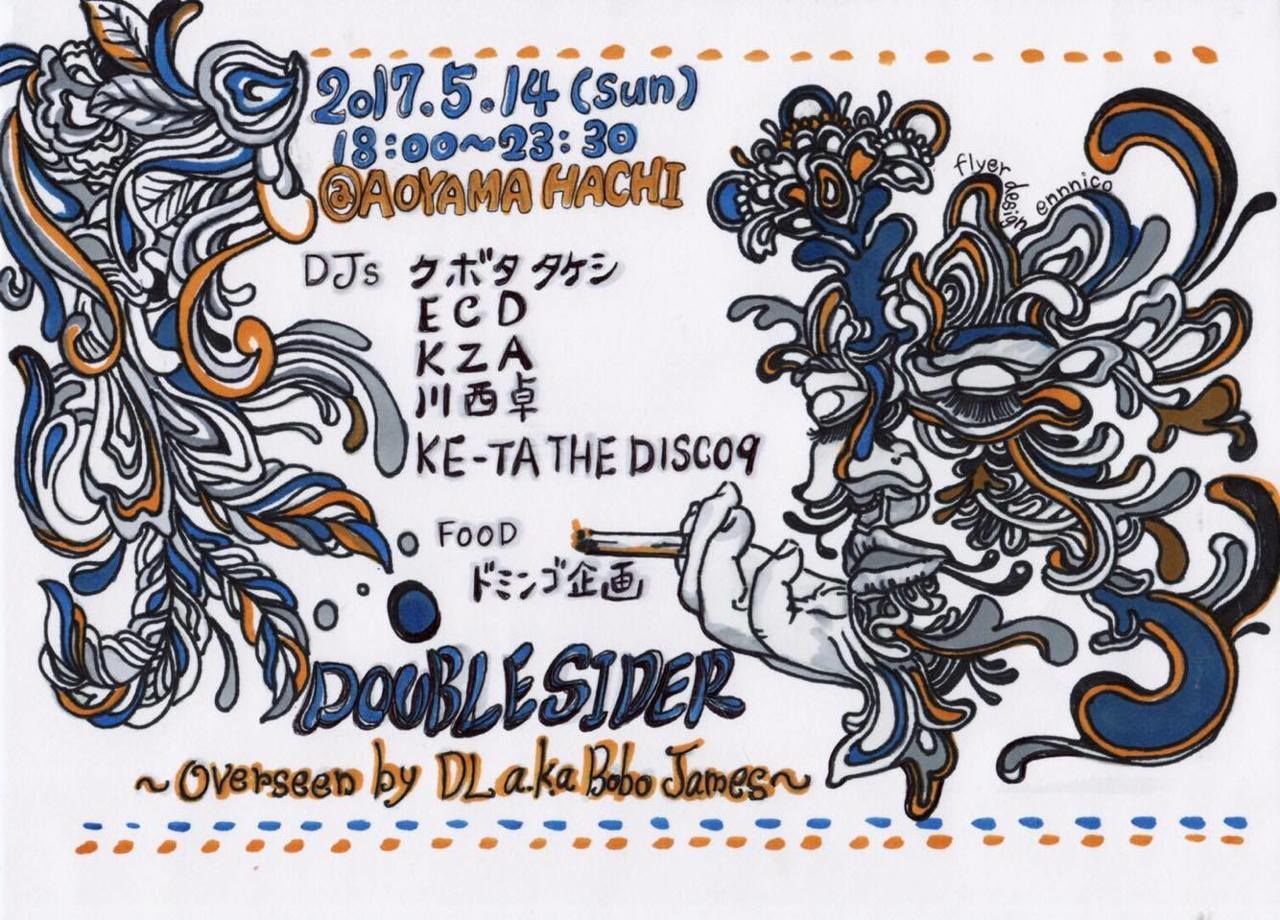 2017.5.14 (Sun)
18:00~23:30
@AOYAMA HACHI
flyer design ennnico
DJs クボタタケシ
ECD
KZA
川西卓
KE-TA THE DISCO9
FOOD
ドミンゴ企画
DOUBLE SIDER
~Overseen by DL a.k.a Bobo James~